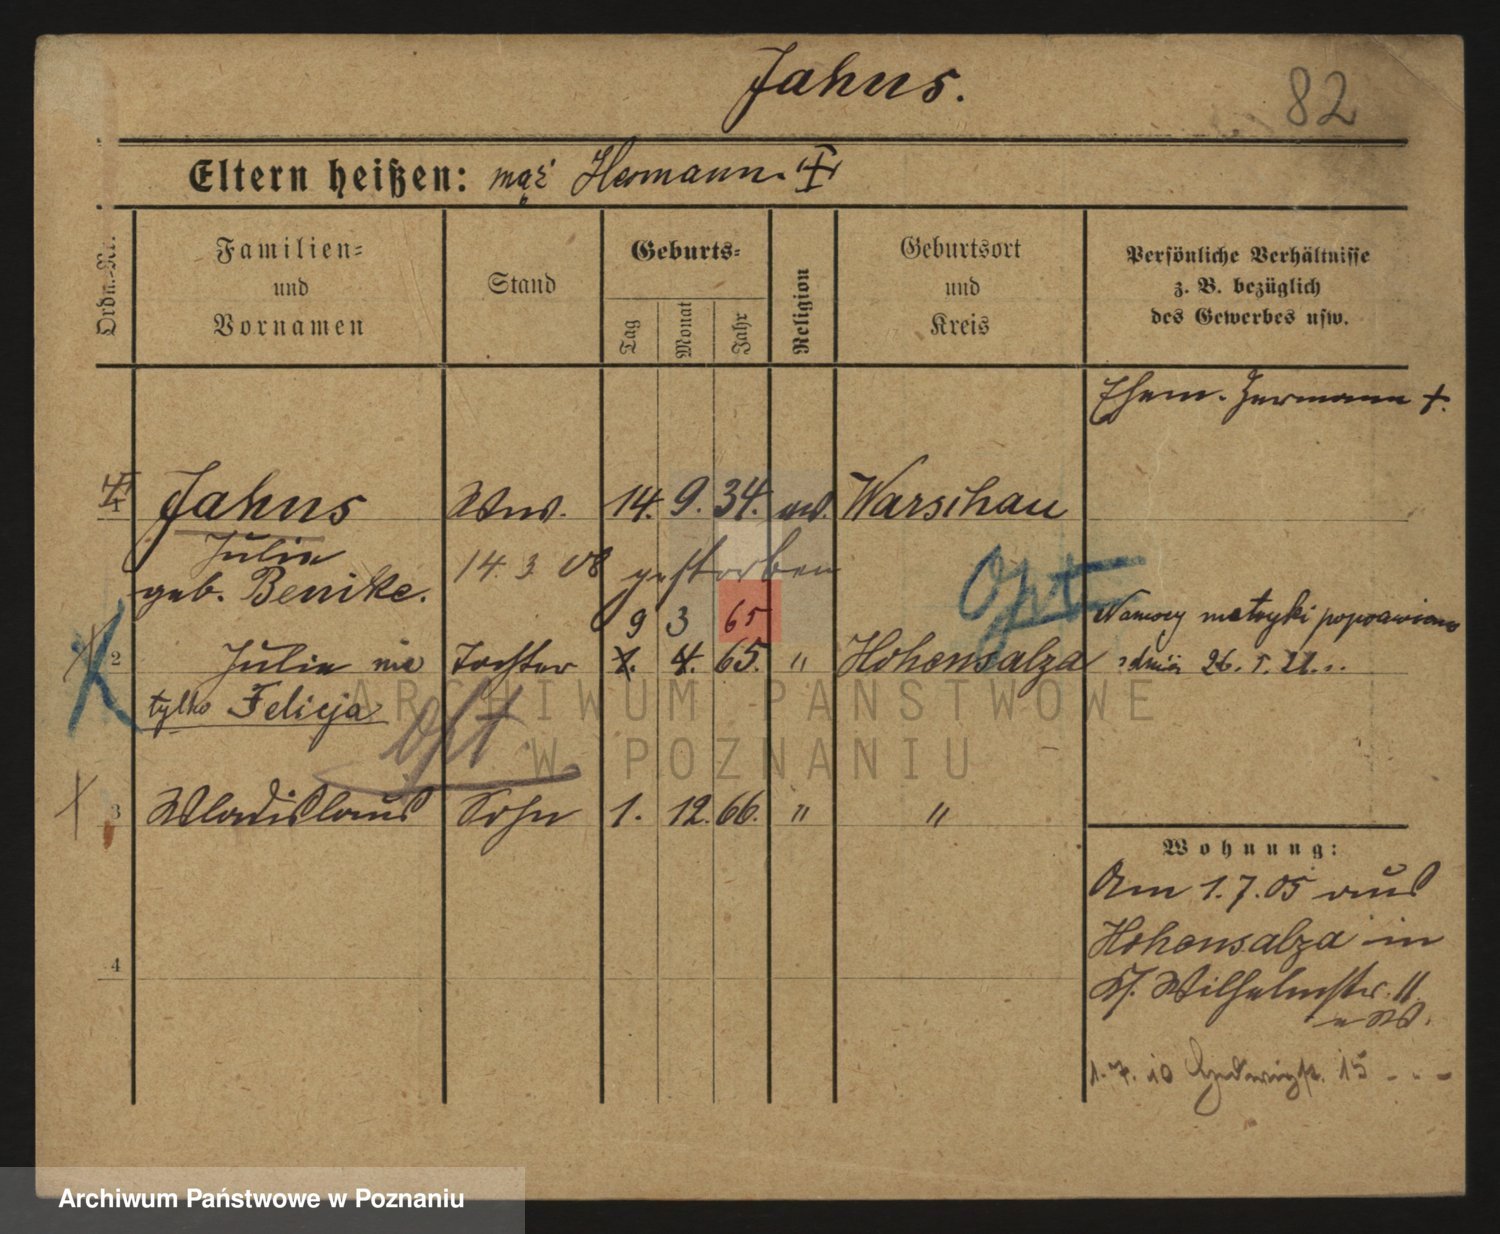 Jahns.
82
Eltern heißen: mąż Hermann. ‡
Ordn.-Nr.
Familien-
und
Vornamen
Stand
Geburts-
Tag
Monat
Jahr
Religion
Geburtsort
und
Kreis
Persönliche Verhältnisse
z. B. bezüglich
des Gewerbes usw.
Ehem. Hermann †.
1 Jahns Wwe. 14. 9. 34. ev. Warschau
Julie
geb. Benike.
14. 3 08 gestorben
Opt
9 3 65
metryki poprawiono
2 Julie nie Tochter 1. 4. 65. " Hohensalza
z dnia 26. 5. 22.
tylko Felicja
Opt
3 Wladislaus Sohn 1. 12. 66. " "
4
Wohnung:
Am 1.7.05 aus
Hohensalza in
Wilhelmstr. 11
1. 7. 10 15 - - -
ARCHIWUM PAŃSTWOWE
W POZNANIU
Archiwum Państwowe w Poznaniu